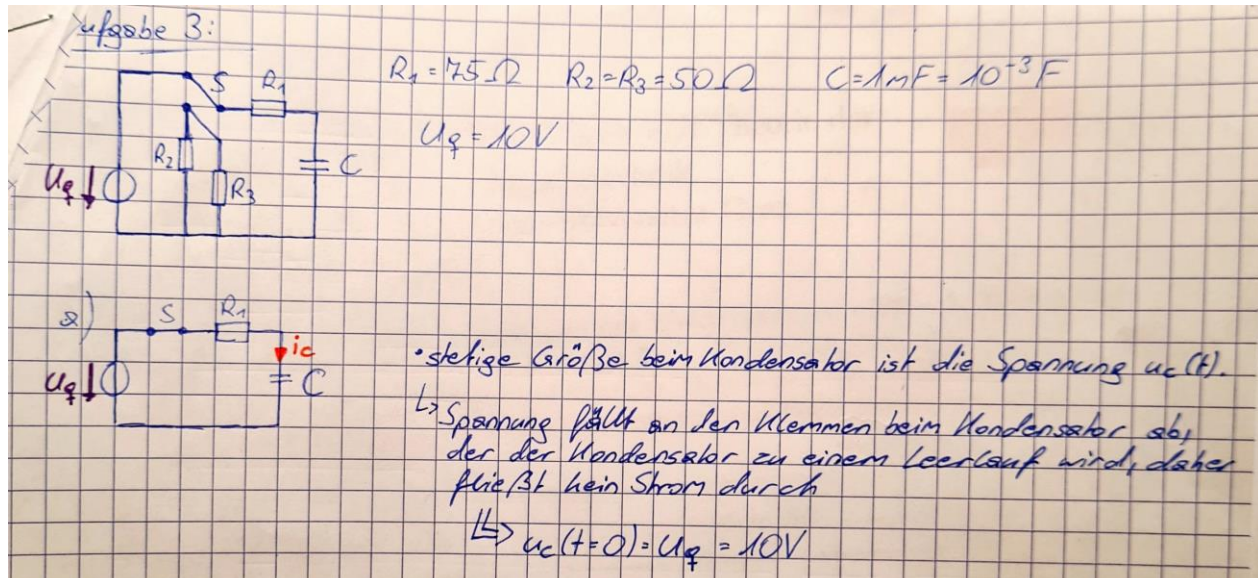 ufgabe 3:
R₁ = 75Ω R₂=R₃=50Ω C=1mF=10⁻³F
S R₁
Uq = 10V
R₂ C
Uq R₃
a) S R₁
ic
Uq C
• stetige Größe beim Kondensator ist die Spannung uc(t).
↳ Spannung fällt an den Klemmen beim Kondensator ab,
der der Kondensator zu einem Leerlauf wird, daher
fließt kein Strom durch
↳ uc(t=0) = Uq = 10V